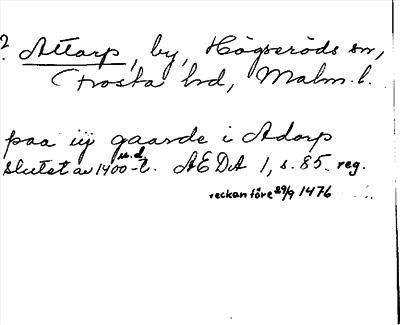 ? Attarp, by, Högseröds sn,
Frosta hd, Malm. l.
paa iij gaarde i Adorp
u.d.
Slutet av 1400-t. AEDA 1, s. 85. reg.
veckan före 29/9 1476